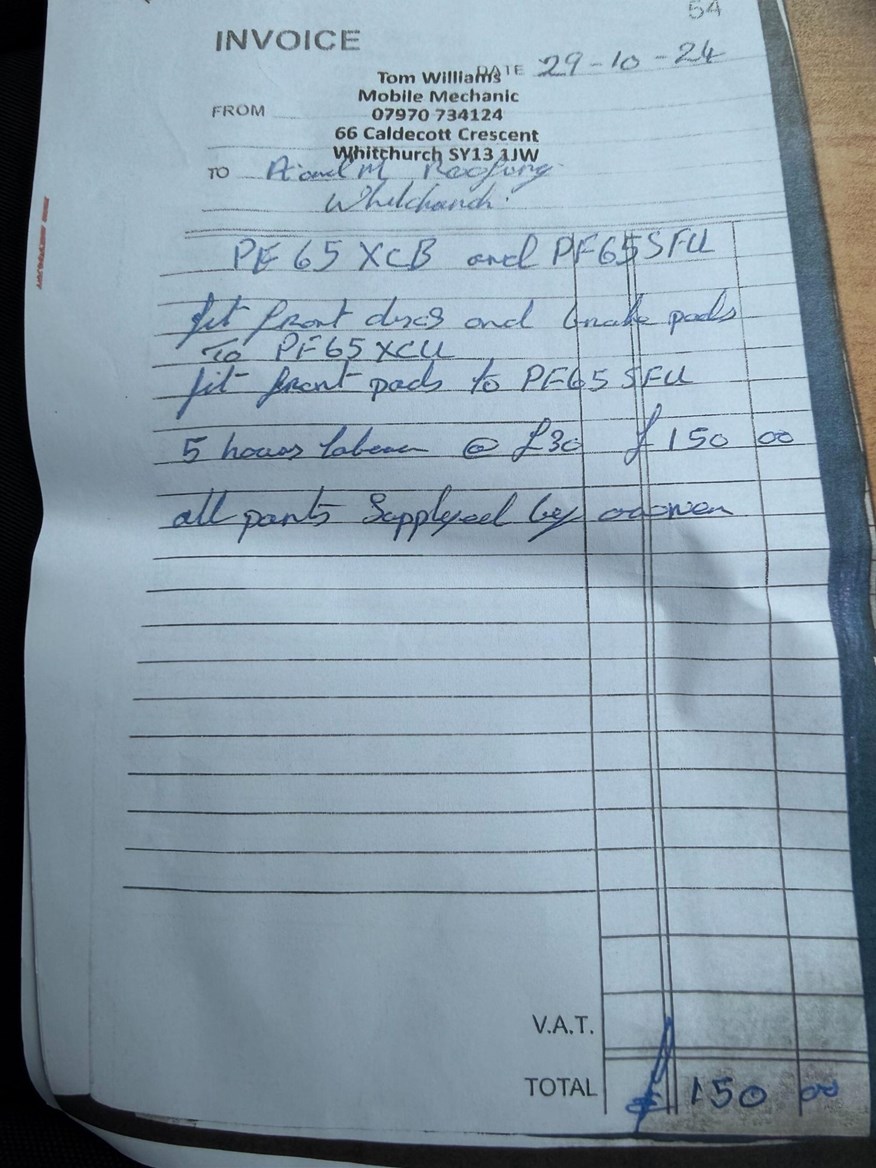 54
INVOICE
DATE 29-10-24
Tom Williams
Mobile Mechanic
FROM
07970 734124
66 Caldecott Crescent
Whitchurch SY13 1JW
TO A and M Roofing
Whitchurch.
PF65 XCB and PF65 SFU
fit front discs and brake pads
To PF65 XCU
fit front pads to PF65 SFU
5 hours labour @ £30 £150 00
all parts Supplyed by
V.A.T.
TOTAL £150 00